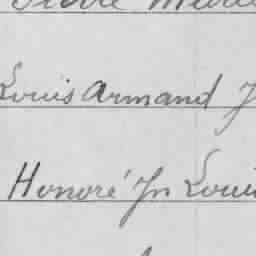 Louis Armand J
Honoré Jn Louis